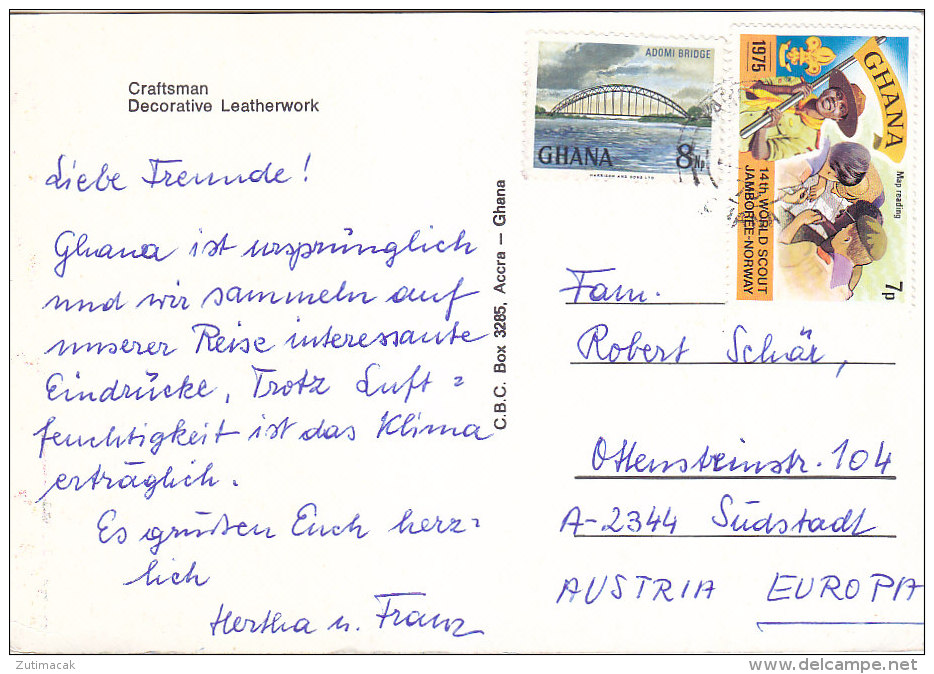 Craftsman
Decorative Leatherwork
Liebe Freunde!
Ghana ist ursprünglich
und wir sammeln auf
unserer Reise interessante
Eindrücke, Trotz Luft=
feuchtigkeit ist das Klima
erträglich.
Es grüßen Euch herz=
lich
Hertha u. Franz
C.B.C. Box 3285, Accra – Ghana
ADOMI BRIDGE
GHANA
8Np
HARRISON AND SONS LTD.
1975
GHANA
Map reading
14th WORLD SCOUT
JAMBOREE-NORWAY
7p
Fam.
Robert Schär,
Ottensteinstr. 104
A-2344 Südstadt
AUSTRIA EUROPA
Zutimacak
delcampe.net